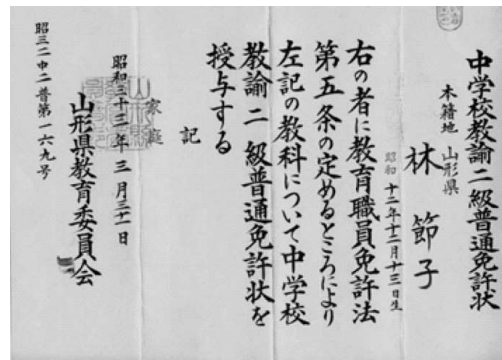 中学校教諭二級普通免許状
本籍地 山形県
林節子
昭和十二年十二月十三日生
右の者に教育職員免許法
第五条の定めるところにより
左記の教科について中学校
教諭二級普通免許状を
授与する
記
家庭
昭和三十三年三月三十一日
山形県教育委員会
昭三二中二普第一六九号